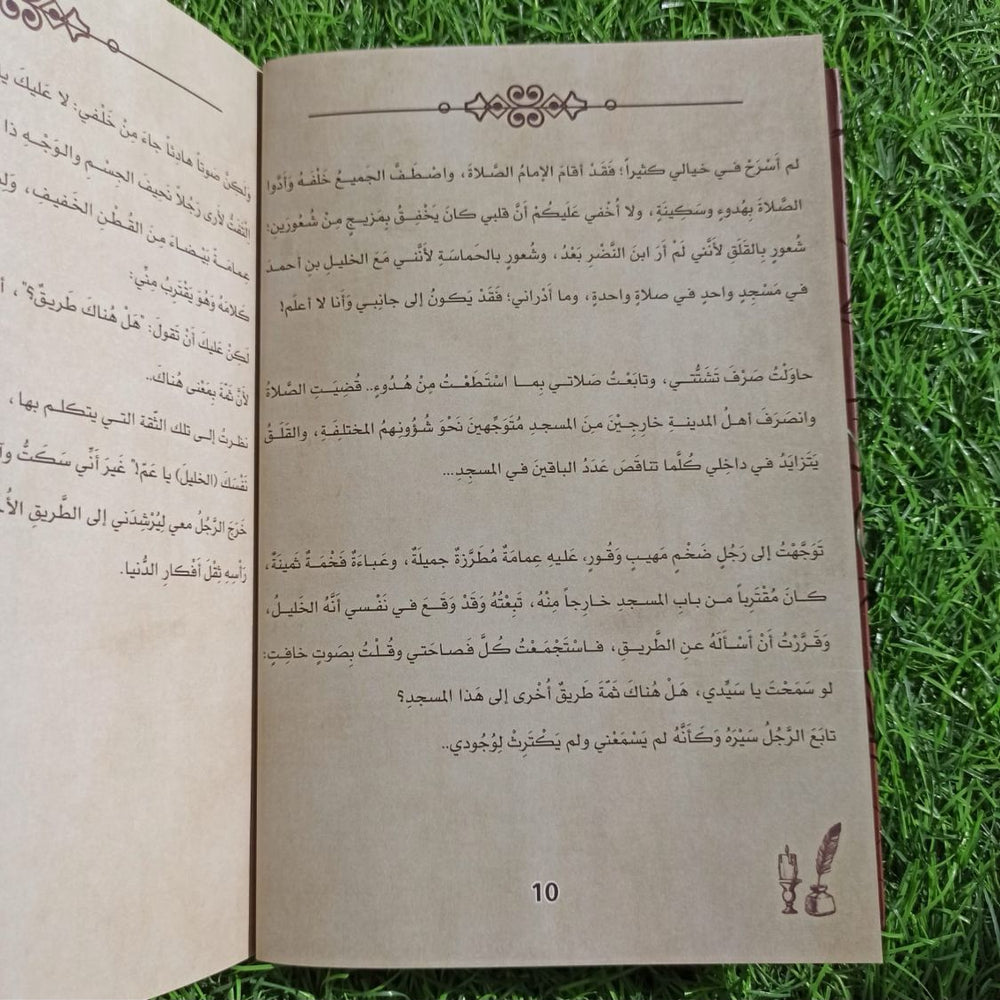 لم أَسْرَحْ في خيالي كثيراً؛ فَقَدْ أقامَ الإمامُ الصَّلاةَ، واصْطَفَّ الجَميعُ خَلْفَهُ وَأَدَّوا
الصَّلاةَ بِهُدوءٍ وسَكِينَةٍ، ولا أُخْفي عَلَيكُمْ أَنَّ قلبي كانَ يَخْفِقُ بِمَزيجٍ مِنْ شُعُورَينِ:
شُعورٍ بِالقَلَقِ لأَنَّني لَمْ أَرَ ابنَ النَّضْرِ بَعْدُ، وشُعورٍ بالحَماسَةِ لأَنَّنـي مَعَ الخليلِ بنِ أحمدَ
في مَسْجِدٍ واحدٍ في صلاةٍ واحدةٍ، وما أدْراني؛ فَقَدْ يَكونُ إلى جانِبي وَأَنا لا أعلَم!
حاوَلْتُ صَرْفَ تَشَتُّتي، وتابَعْتُ صَلاتي بِمـا اسْتَطَعْـتُ مِنْ هُـدُوءٍ.. قُضِيَـتِ الصَّلاةُ
وانصَرَفَ أهـلُ المدينـةِ خارِجِيْنَ مِنَ المسجدِ مُتَوَجِّهينَ نَحْوَ شُؤُونِهِمُ المختلفِةِ، والقَلَقُ
يَتَزايَدُ في داخِلي كُلَّما تناقَصَ عَدَدُ الباقينَ في المسجِدِ...
تَوَجَّهْتُ إلى رَجُلٍ ضَخْمٍ مَهيبٍ وَقُورٍ، عَليهِ عِمامَةٌ مُطَرَّزةٌ جميلةٌ، وعَباءَةٌ فَخْمَـةٌ ثَمينَةٌ،
كـانَ مُقْتَرِباً مـن بابِ المسـجدِ خارِجـاً مِنْهُ، تَبِعْتُهُ وَقَدْ وَقَعَ في نَفْسي أَنَّهُ الخَليلُ،
وَقَـرَّرْتُ أَنْ أَسْـأَلَهُ عنِ الطَّريـقِ، فـاسْتَجْمَعْتُ كُـلَّ فَصـاحَتي وقُـلْتُ بِصَوتٍ خافِتٍ:
لو سَمَحْتَ يا سَيِّدي، هَلْ هُناكَ ثَمَّةَ طَريقٌ أُخْرى إلى هَذا المسجدِ؟
تابَعَ الرَّجُلُ سَيْرَهُ وَكَأَنَّهُ لم يَسْمَعْني ولم يَكْتَرِثْ لِوُجُودي..
10
وَلَكِنَّ صَوتاً هادِئاً جاءَ مِنْ خَلْفي: لا عَليكَ
التَفَتُّ لأرى رَجُلاً نَحيفَ الجِسْمِ والوَجْـهِ ذا
عِمامَـةً بَيْـضاءَ مِنَ القُطْنِ الخَفيفِ،
كلامَهُ وَهُوَ يَقْتَرِبُ مِنِّي:
لَكِنْ عَليكَ أَنْ تَقولَ: "هَلْ هُناكَ طَريقٌ؟"،
لأنَّ ثَمَّةَ بِمَعْنى هُناكَ..
نظرتُ إلـى تلك الثّقة التـي يتكلـم بهـا،
نَفْسَكَ (الخليلَ) يا عَمّ!" غَيرَ أَنِّي سَكَتُّ
خَرَجَ الرَّجُلُ معي لِيُرْشِدَني إلى الطَّريقِ
رَأْسِهِ ثِقْلَ أَفْكارِ الدُّنيا.